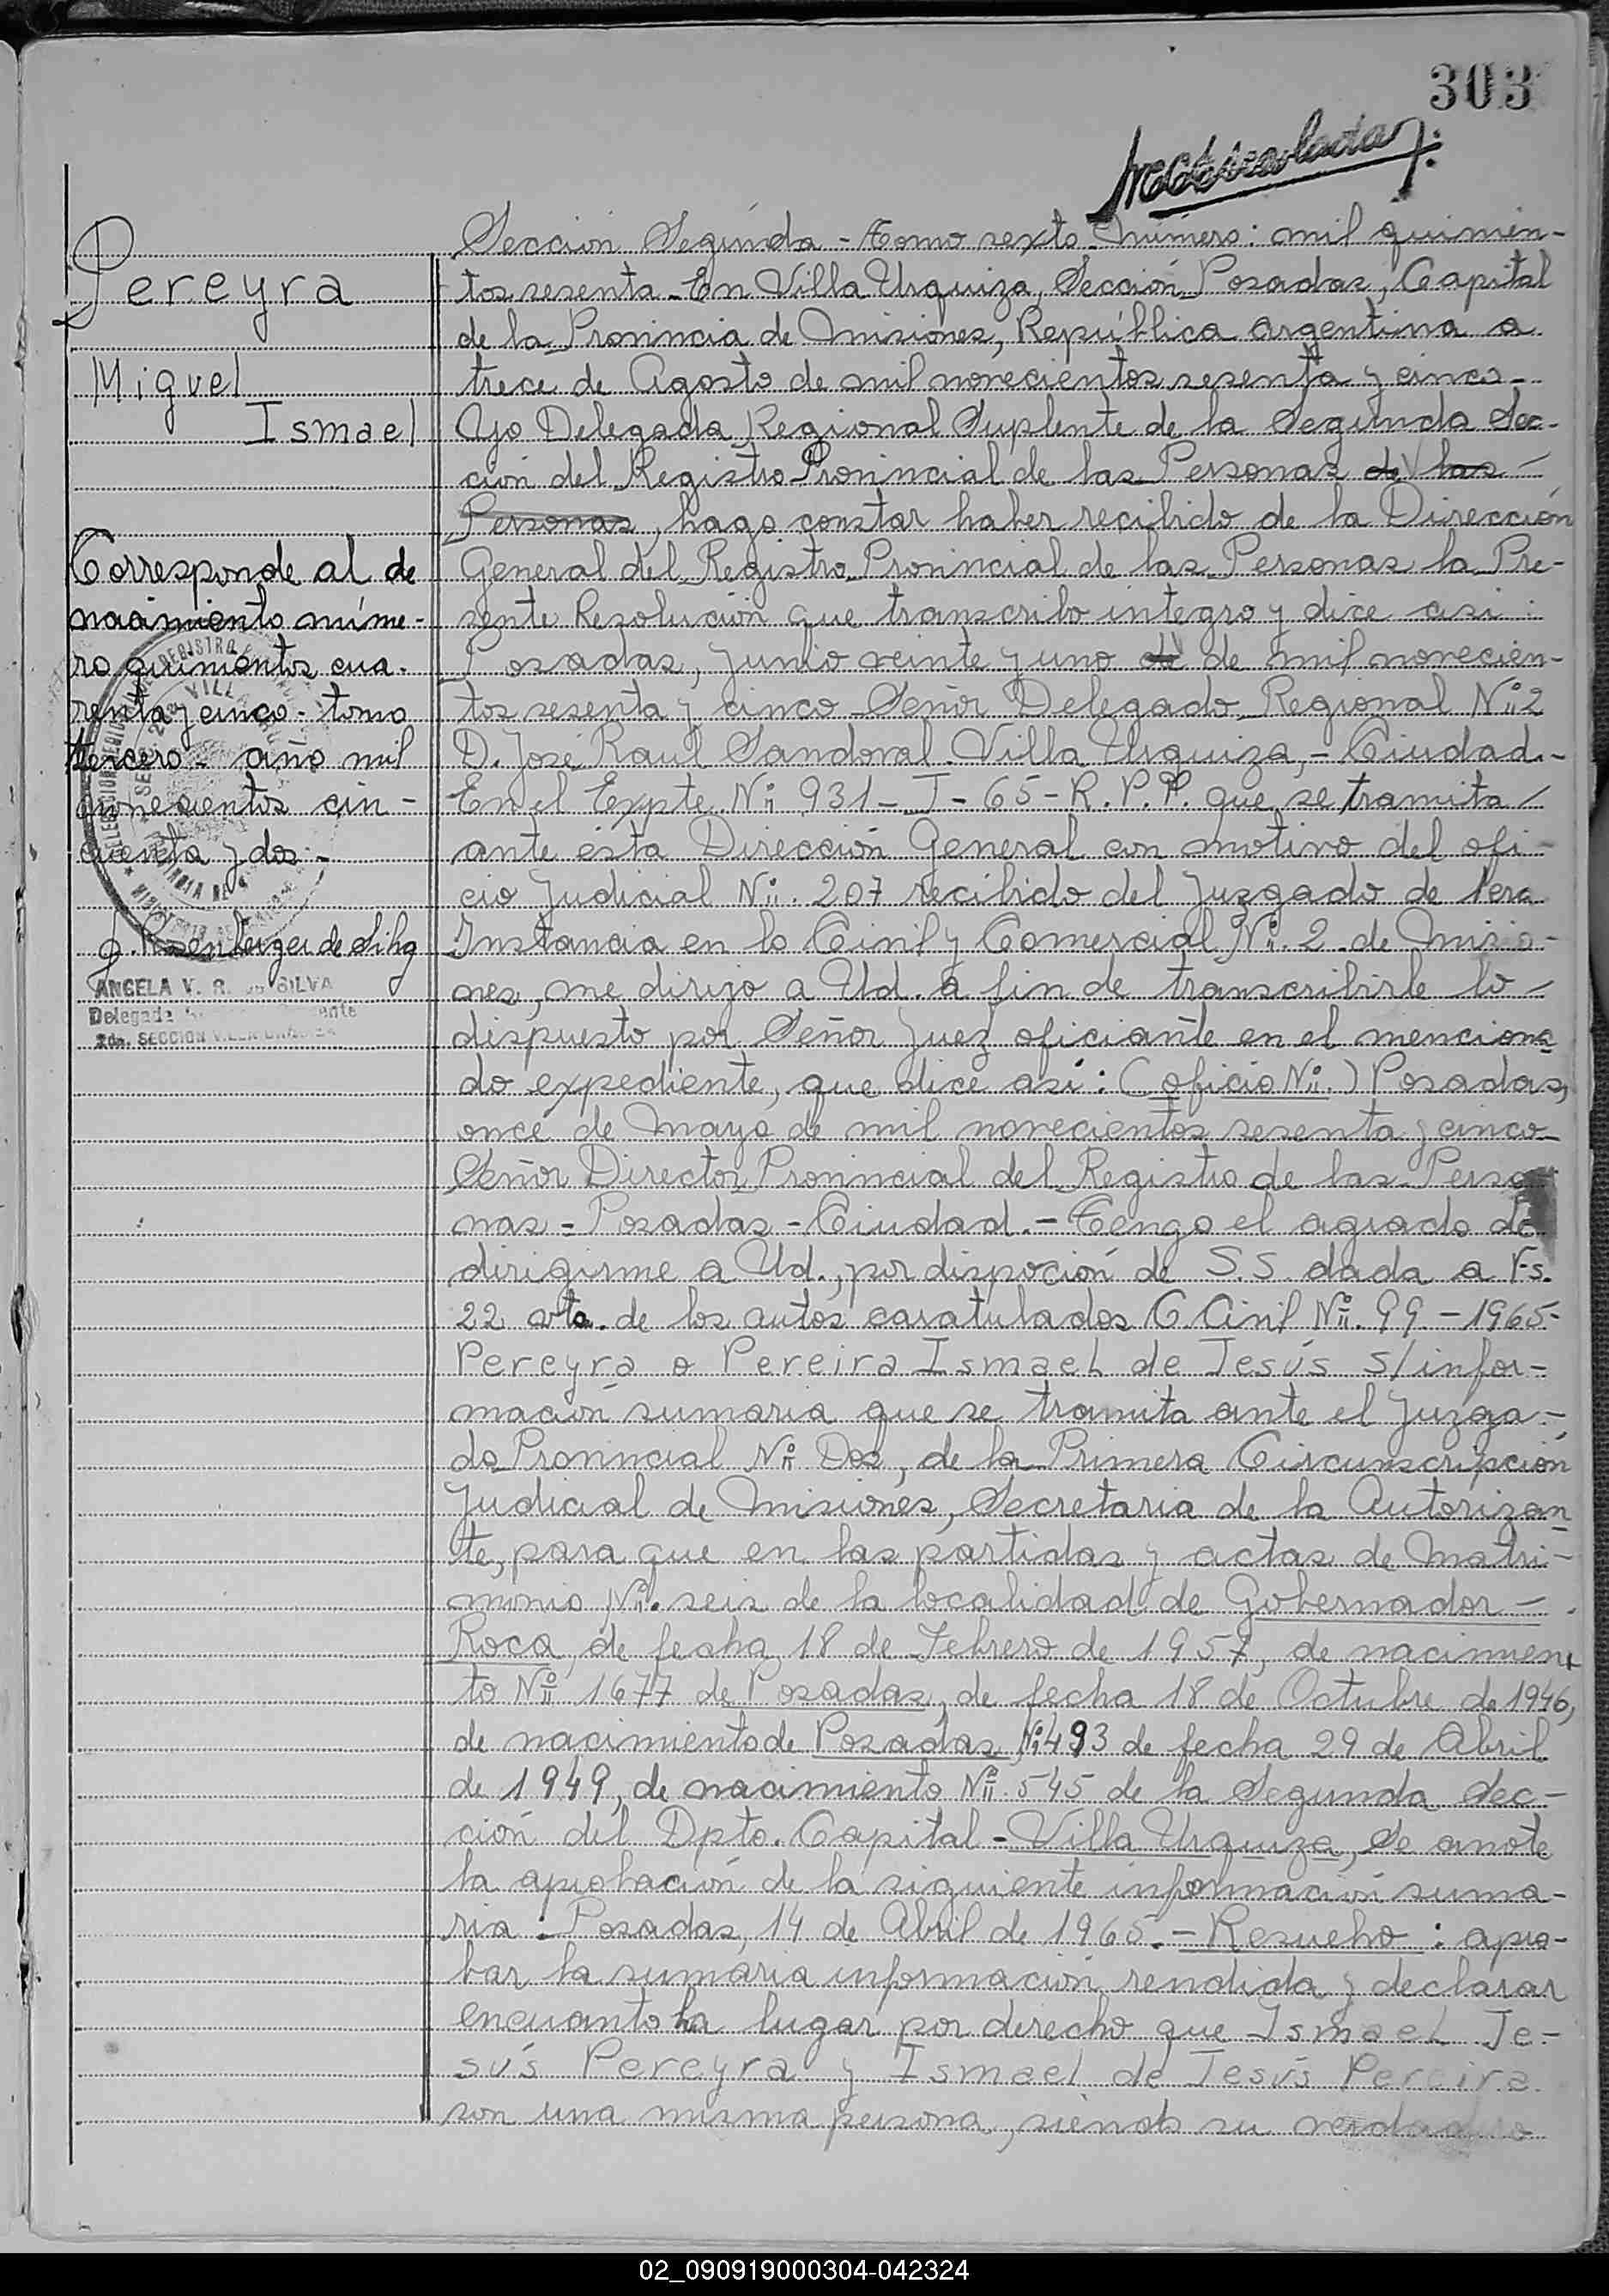 303
Pereyra
Miguel
Ismael
Corresponde al de
nacimiento núme-
ro quinientos cua-
renta y cinco - tomo
tercero - año mil
novecientos cin-
cuenta y dos -
ANGELA V. R. DE SILVA
Delegada
2da. SECCION VILLA URQUIZA
Sección Segunda - Tomo sexto - número: mil quinien-
tos sesenta - En Villa Urquiza, Sección Posadas, Capital
de la Provincia de Misiones, República Argentina a
trece de Agosto de mil novecientos sesenta y cinco -
Yo Delegada Regional Suplente de la Segunda Sec-
ción del Registro Provincial de las Personas de las -
Personas, hago constar haber recibido de la Dirección
General del Registro Provincial de las Personas la Pre-
sente Resolución que transcribo integro y dice asi:
Posadas, junio veinte y uno de de mil novecien-
tos sesenta y cinco - Señor Delegado Regional Nº 2
D. José Raúl Sandoval - Villa Urquiza, - Ciudad. -
En el Expte. Nº 931 - J - 65 - R. P. P. que se tramita
ante ésta Dirección General con motivo del ofi-
cio Judicial Nº. 207 recibido del Juzgado de 1era
Instancia en lo Civil y Comercial Nº. 2 de Misio-
nes, me dirijo a Ud. a fin de transcribirle lo -
dispuesto por Señor Juez oficiante en el menciona
do expediente, que dice asi: (oficio Nº.) Posadas,
once de Mayo de mil novecientos sesenta y cinco -
Señor Director Provincial del Registro de las Perso
nas = Posadas - Ciudad. - Tengo el agrado de
dirigirme a Ud., por dispoción de S.S. dada a Fs.
22 vta. de los autos caratulados C. Civil Nº. 99 - 1965 -
Pereyra o Pereira Ismael de Jesús S/ infor-
mación sumaria que se tramita ante el Juzga-
do Provincial Nº Dos, de la Primera Circunscripción
Judicial de Misiones, Secretaria de la Autorizan
te, para que en las partidas y actas de Matri-
monio Nº. seis de la localidad de Gobernador -
Roca, de fecha 18 de Febrero de 1957, de nacimien
to Nº 1677 de Posadas, de fecha 18 de Octubre de 1946,
de nacimiento de Posadas Nº 493 de fecha 29 de Abril
de 1949, de nacimiento Nº. 545 de la Segunda Sec-
ción del Dpto. Capital - Villa Urquiza, Se anote
la aprobación de la siguiente información suma-
ria: Posadas, 14 de Abril de 1965. - Resuelvo: apro-
bar la sumaria información rendida y declarar
encuanto ha lugar por derecho que Ismael Je-
sús Pereyra y Ismael de Jesús Pereira
son una misma persona, siendo su verdadero
02_090919000304-042324